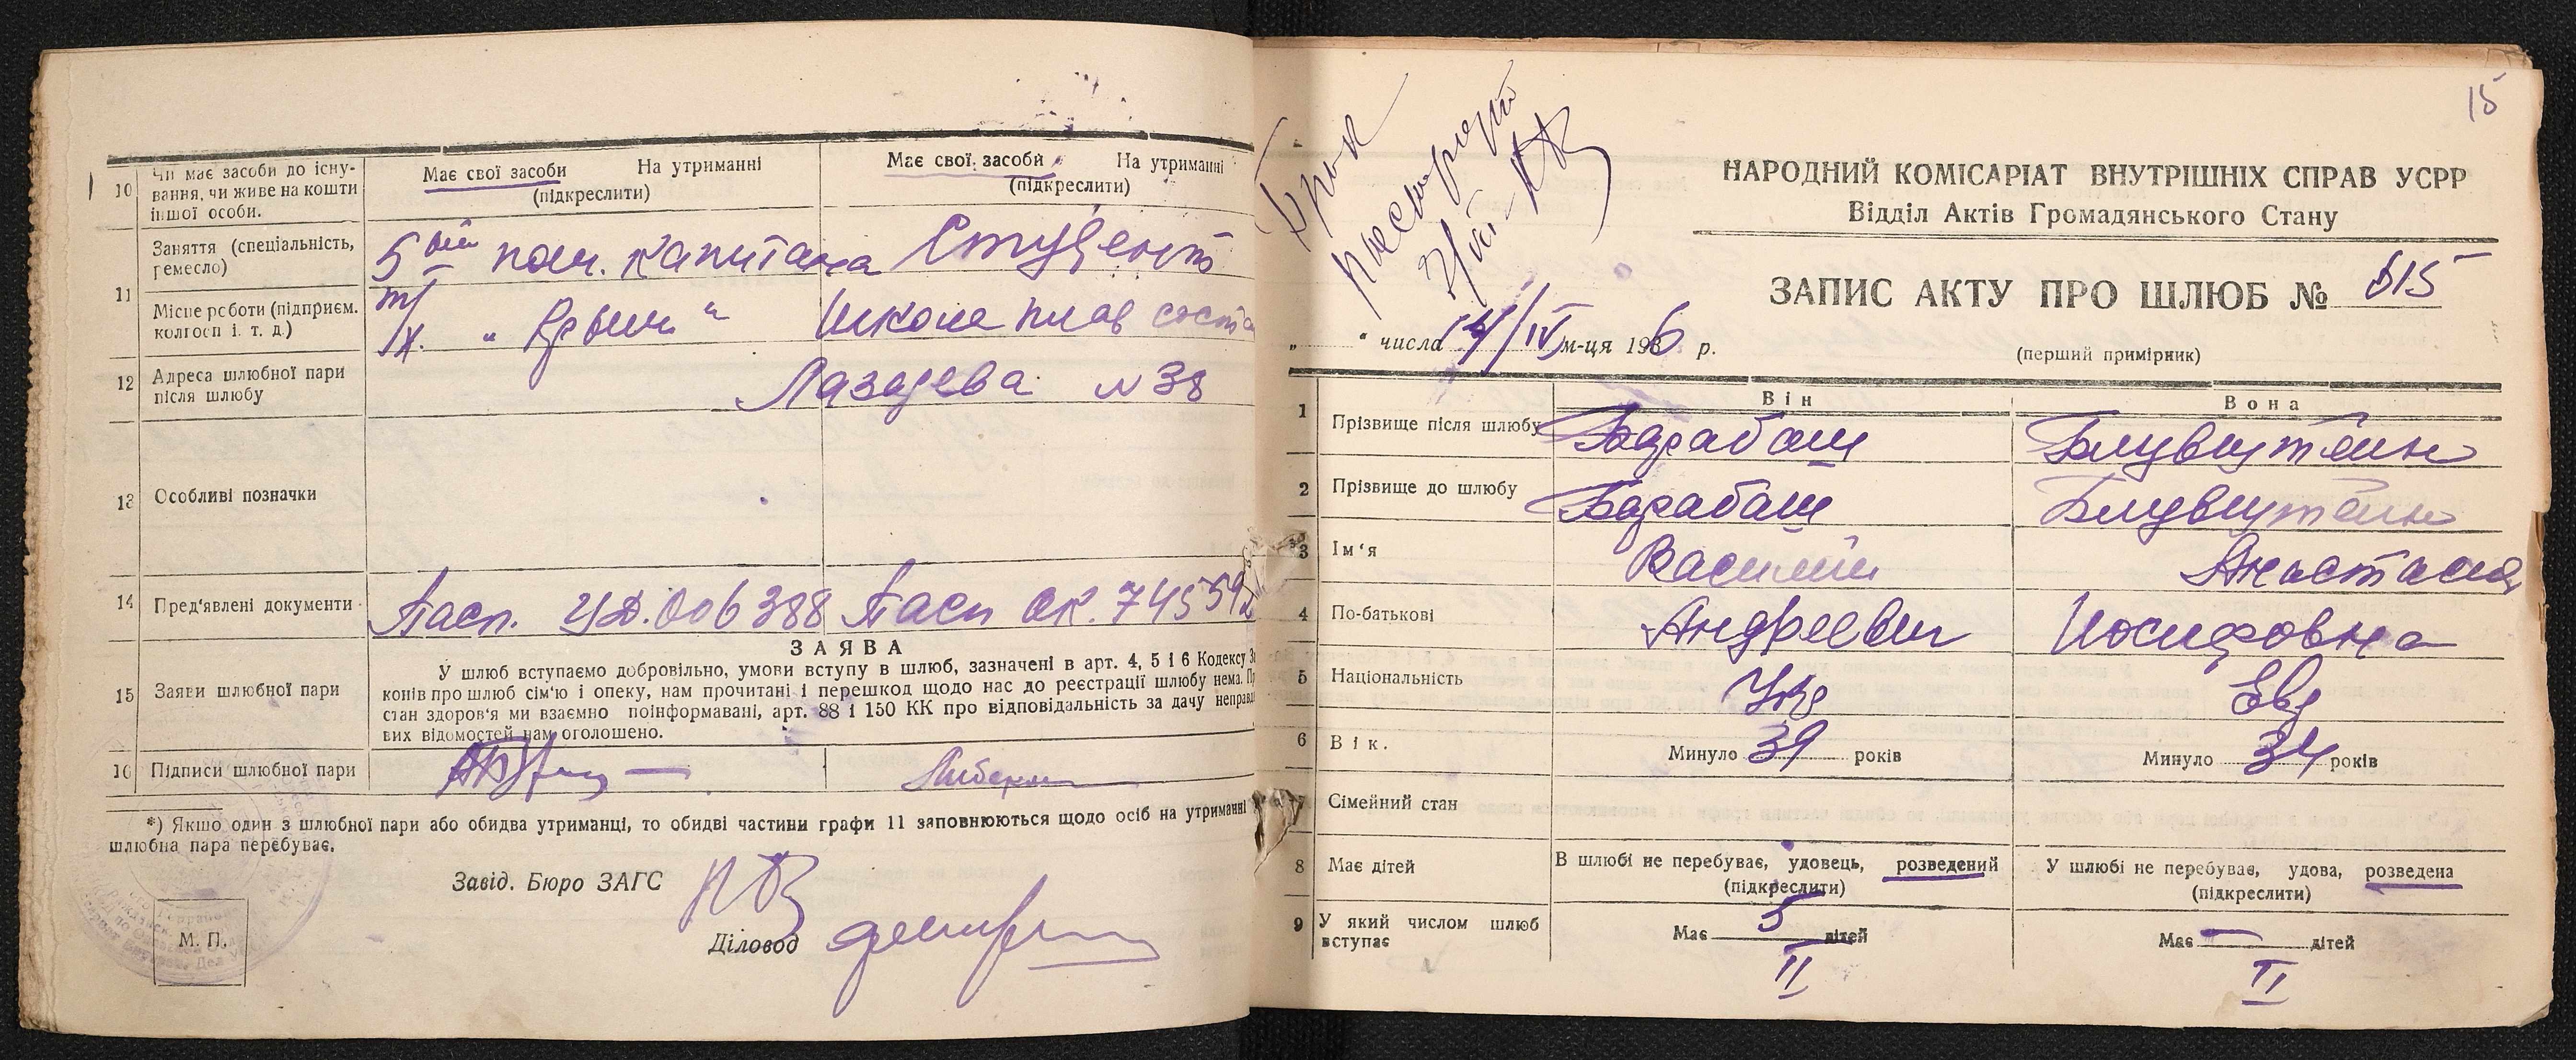 10
Чи має засоби до існу-
вання, чи живе на кошти
іншої особи.
Має свої засоби На утриманні
(підкреслити)
Має свої засоби На утриманні
(підкреслити)
11
Заняття (спеціальність,
ремесло)
5ый пом. капитана
Студент
Місце роботи (підприєм.
колгосп і. т. д.)
Школа плав
12
Адреса шлюбної пари
після шлюбу
Лазарева №38
13
Особливі позначки
14
Пред'явлені документи
Пасп. УД.006388
Пасп СК.74559
15
Заяви шлюбної пари
ЗАЯВА
У шлюб вступаємо добровільно, умови вступу в шлюб, зазначені в арт. 4, 5 і 6 Кодексу За
конів про шлюб сім'ю і опеку, нам прочитані і перешкод щодо нас до реєстрації шлюбу нема. П
стан здоров'я ми взаємно поінформавані, арт. 88 і 150 КК про відповідальність за дачу неправд
вих відомостей нам оголошено.
16
Підписи шлюбної пари
*) Якшо один з шлюбної пари або обидва утриманці, то обидві частини графи 11 заповнюються щодо осіб на утриманні
шлюбна пара перебуває.
Завід. Бюро ЗАГС
Діловод
М. П.
15
НАРОДНИЙ КОМІСАРІАТ ВНУТРІШНІХ СПРАВ УСРР
Відділ Актів Громадянського Стану
ЗАПИС АКТУ ПРО ШЛЮБ № 615
„ “ числа 14/IV м-ця 1936 р.
(перший примірник)
Він
Вона
1
Прізвище після шлюбу
Барабаш
Блувштейн
2
Прізвище до шлюбу
Барабаш
Блувштейн
3
Ім'я
Василий
Анастасия
4
По-батькові
Андреевич
Иосифовна
5
Національність
Укр
Евр
6
Вік.
Минуло 39 років
Минуло 34 років
7
Сімейний стан
8
Має дітей
В шлюбі не перебуває, удовець, розведений
(підкреслити)
У шлюбі не перебуває, удова, розведена
(підкреслити)
9
У який числом шлюб
вступає
Має 5 дітей
II
Має — дітей
II